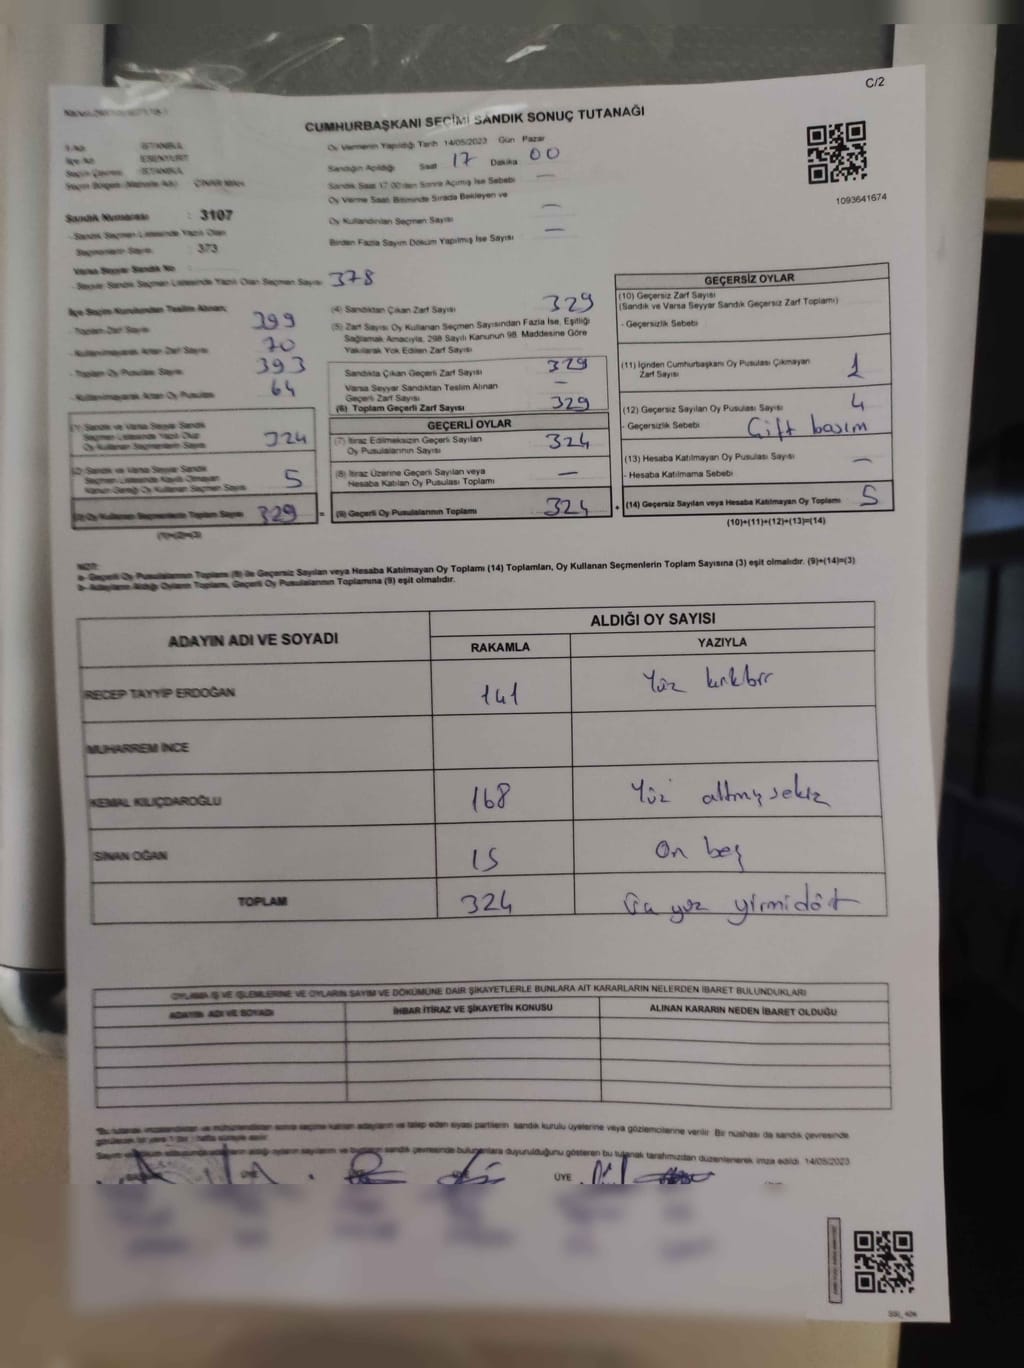 C/2
CUMHURBAŞKANI SEÇİMİ SANDIK SONUÇ TUTANAĞI
İSTANBUL
ESENYURT
İSTANBUL
ÇINAR MAH.
Sandık Numarası : 3107
- Sandık Seçmen Listesinde Yazılı Olan
Seçmenlerin Sayısı : 373
Varsa Seyyar Sandık No
- Seyyar Sandık Seçmen Listesinde Yazılı Olan Seçmen Sayısı 378
Oy Vermenin Yapıldığı Tarih 14/05/2023 Gün Pazar
Sandığın Açıldığı Saat 17 Dakika 00
Sandık Saat 17.00'den Sonra Açılmış İse Sebebi —
Oy Verme Saati Bitiminde Sırada Bekleyen ve
Oy Kullandırılan Seçmen Sayısı —
Birden Fazla Sayım Döküm Yapılmış İse Sayısı —
1093641674
İlçe Seçim Kurulundan Teslim Alınan;
- Toplam Zarf Sayısı 399
- Kullanılmayarak Artan Zarf Sayısı 70
- Toplam Oy Pusulası Sayısı 393
- Kullanılmayarak Artan Oy Pusulası 64
(1) Sandık ve Varsa Seyyar Sandık
Seçmen Listesinde Yazılı Olup
Oy Kullanan Seçmenlerin Sayısı 324
(2) Sandık ve Varsa Seyyar Sandık
Seçmen Listesinde Kayıtlı Olmayan
Kanun Gereği Oy Kullanan Seçmen Sayısı 5
(3) Oy Kullanan Seçmenlerin Toplam Sayısı 329 =
(1)+(2)=(3)
(4) Sandıktan Çıkan Zarf Sayısı 329
(5) Zarf Sayısı Oy Kullanan Seçmen Sayısından Fazla İse, Eşitliği
Sağlamak Amacıyla, 298 Sayılı Kanunun 98. Maddesine Göre
Yakılarak Yok Edilen Zarf Sayısı
Sandıkta Çıkan Geçerli Zarf Sayısı 329
Varsa Seyyar Sandıktan Teslim Alınan
Geçerli Zarf Sayısı —
(6) Toplam Geçerli Zarf Sayısı 329
GEÇERLİ OYLAR
(7) İtiraz Edilmeksizin Geçerli Sayılan
Oy Pusulalarının Sayısı 324
(8) İtiraz Üzerine Geçerli Sayılan veya
Hesaba Katılan Oy Pusulası Toplamı —
(9) Geçerli Oy Pusulalarının Toplamı 324 +
GEÇERSİZ OYLAR
(10) Geçersiz Zarf Sayısı
(Sandık ve Varsa Seyyar Sandık Geçersiz Zarf Toplamı)
- Geçersizlik Sebebi
(11) İçinden Cumhurbaşkanı Oy Pusulası Çıkmayan
Zarf Sayısı 1
(12) Geçersiz Sayılan Oy Pusulası Sayısı 4
- Geçersizlik Sebebi Çift basım
(13) Hesaba Katılmayan Oy Pusulası Sayısı —
- Hesaba Katılmama Sebebi
(14) Geçersiz Sayılan veya Hesaba Katılmayan Oy Toplamı 5
(10)+(11)+(12)+(13)=(14)
NOT:
a- Geçerli Oy Pusulalarının Toplamı (9) ile Geçersiz Sayılan veya Hesaba Katılmayan Oy Toplamı (14) Toplamları, Oy Kullanan Seçmenlerin Toplam Sayısına (3) eşit olmalıdır. (9)+(14)=(3)
b- Adayların Aldığı Oyların Toplamı, Geçerli Oy Pusulalarının Toplamına (9) eşit olmalıdır.
ADAYIN ADI VE SOYADI
ALDIĞI OY SAYISI
RAKAMLA YAZIYLA
RECEP TAYYİP ERDOĞAN 141 Yüz kırkbir
MUHARREM İNCE
KEMAL KILIÇDAROĞLU 168 Yüz altmış sekiz
SİNAN OĞAN 15 On beş
TOPLAM 324 yüz yirmidört
OYLAMA İŞ VE İŞLEMLERİNE VE OYLARIN SAYIM VE DÖKÜMÜNE DAİR ŞİKAYETLERLE BUNLARA AİT KARARLARIN NELERDEN İBARET BULUNDUKLARI
ADAYIN ADI VE SOYADI İHBAR İTİRAZ VE ŞİKAYETİN KONUSU ALINAN KARARIN NEDEN İBARET OLDUĞU
*Bu tutanak imzalandıktan ve mühürlendikten sonra seçime katılan adayların ve talep eden siyasi partilerin sandık kurulu üyelerine veya gözlemcilerine verilir. Bir nüshası da sandık çevresinde
görülecek bir yere 1 (bir) hafta süreyle asılır.
gösteren bu tutanak tarafımızdan düzenlenerek imza edildi. 14/05/2023
ÜYE